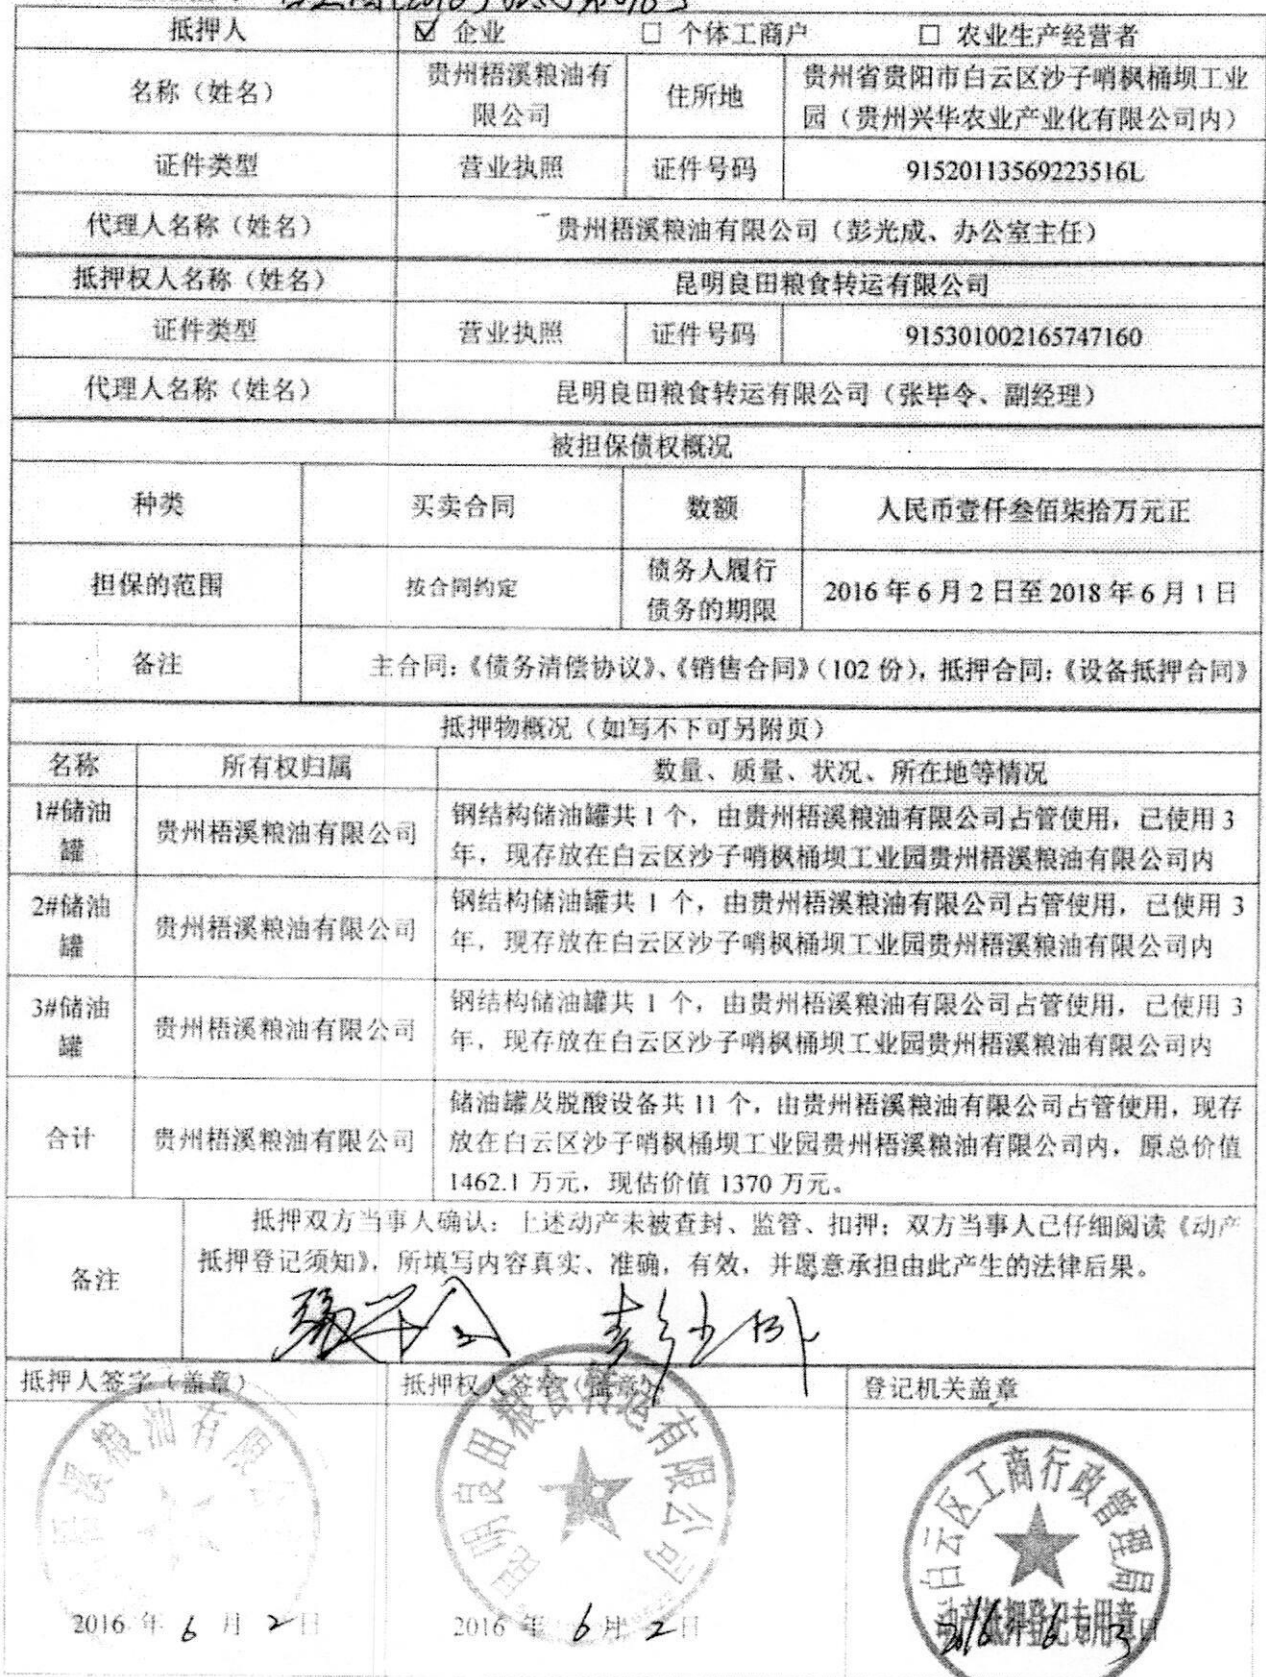 抵押人 ☑ 企业 □ 个体工商户 □ 农业生产经营者
名称（姓名） 贵州梧溪粮油有限公司 住所地 贵州省贵阳市白云区沙子哨枫桶坝工业园（贵州兴华农业产业化有限公司内）
证件类型 营业执照 证件号码 91520113569223516L
代理人名称（姓名） 贵州梧溪粮油有限公司（彭光成、办公室主任）
抵押权人名称（姓名） 昆明良田粮食转运有限公司
证件类型 营业执照 证件号码 915301002165747160
代理人名称（姓名） 昆明良田粮食转运有限公司（张毕令、副经理）
被担保债权概况
种类 买卖合同 数额 人民币壹仟叁佰柒拾万元正
担保的范围 按合同约定 债务人履行债务的期限 2016年6月2日至2018年6月1日
备注 主合同：《债务清偿协议》、《销售合同》（102份），抵押合同：《设备抵押合同》
抵押物概况（如写不下可另附页）
名称 所有权归属 数量、质量、状况、所在地等情况
1#储油罐 贵州梧溪粮油有限公司 钢结构储油罐共1个，由贵州梧溪粮油有限公司占管使用，已使用3
年，现存放在白云区沙子哨枫桶坝工业园贵州梧溪粮油有限公司内
2#储油罐 贵州梧溪粮油有限公司 钢结构储油罐共1个，由贵州梧溪粮油有限公司占管使用，已使用3
年，现存放在白云区沙子哨枫桶坝工业园贵州梧溪粮油有限公司内
3#储油罐 贵州梧溪粮油有限公司 钢结构储油罐共1个，由贵州梧溪粮油有限公司占管使用，已使用3
年，现存放在白云区沙子哨枫桶坝工业园贵州梧溪粮油有限公司内
合计 贵州梧溪粮油有限公司 储油罐及脱酸设备共11个，由贵州梧溪粮油有限公司占管使用，现存
放在白云区沙子哨枫桶坝工业园贵州梧溪粮油有限公司内，原总价值
1462.1万元，现估价值1370万元。
备注 抵押双方当事人确认：上述动产未被查封、监管、扣押；双方当事人已仔细阅读《动产
抵押登记须知》，所填写内容真实、准确，有效，并愿意承担由此产生的法律后果。
抵押人签字（盖章） 抵押权人签字（盖章） 登记机关盖章
溪粮油有限
昆明良田粮食转运有限公司
白云区工商行政管理局
动产抵押登记专用章
2016年6月2日 2016年6月2日